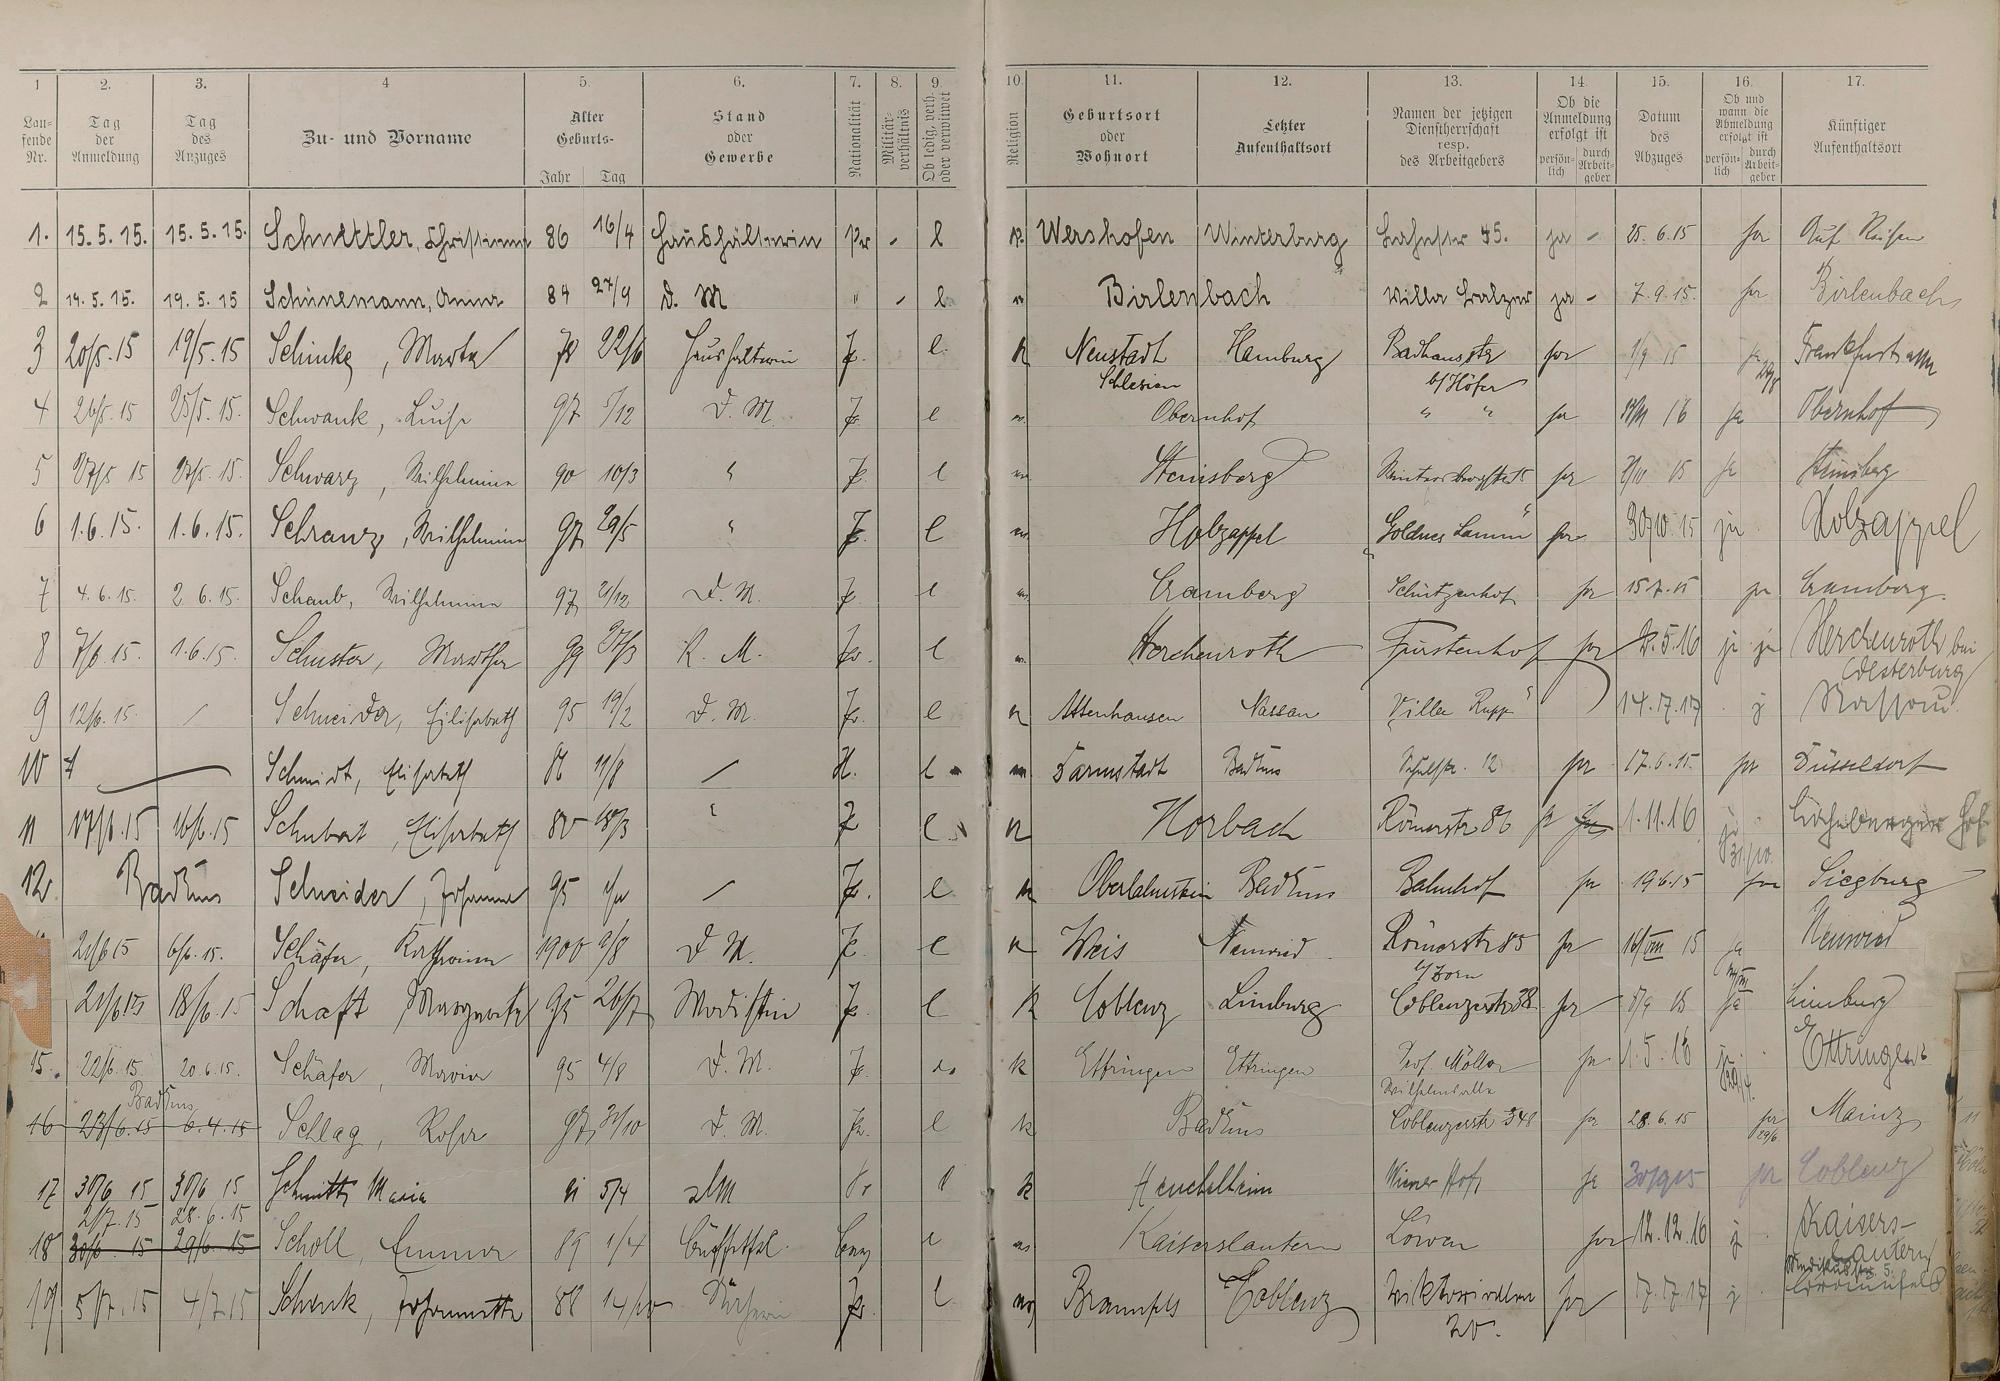 1 2. 3. 4 5. 6. 7. 8. 9. 10. 11. 12. 13. 14. 15. 16. 17.
Lau-fende Nr. Tag der Anmeldung Tag des Anzuges Zu- und Vorname Alter Geburts- Jahr Tag Stand oder Gewerbe Nationalität Militär-verhältnis Ob ledig, verh. oder verwitwet Religion Geburtsort oder Wohnort Letzter Aufenthaltsort Namen der jetzigen Dienstherrschaft resp. des Arbeitgebers Ob die Anmeldung erfolgt ist persön-lich durch Arbeit-geber Datum des Abzuges Ob und wann die Abmeldung erfolgt ist persön-lich durch Arbeit-geber Künftiger Aufenthaltsort
1. 15.5.15. 15.5.15. 86 16/4 Haushälterin Pr - l Wershofen Winterburg 45. ja - 25.6.15 ja Auf Reisen
2 19.5.15. 19.5.15 Schünemann, Anna 84 27/9 D. M " - l " Birlenbach Villa Balzer ja - 7.9.15. ja Birlenbach
3 20/5.15 19/5.15 Schinke, Marta 22/6 Haushälterin Pr. l. k Neustadt Schlesien Hamburg Badhausstr b/Höfer ja 1/9 15 ja 28/8 Frankfurt a/M
4 26/5.15 25/5.15. Schwank, Luise 97 5/12 D. M. Pr l Obernhof " " ja 16 ja Obernhof
5 27/5 15 27/5.15. Schwarz, Wilhelmine 90 10/3 " Pr. l Steinsberg ja 15 ja Steinsberg
6 1.6.15. 1.6.15. Schranz, Wilhelmine 97 29/5 " Pr. l Holzappel "Goldnes Lamm" ja 30/10.15 ja Holzappel
7 4.6.15. 2.6.15. Schaub, Wilhelmine 97 21/12 D. M. Pr l Cramberg Schützenhof ja 15.7.15 ja Cramberg.
8 7/6.15. 1.6.15. Schuster, Marthe 99 27/3 K. M. Pr. l Herchenroth Fürstenhof ja 5.16 ja ja Herchenroth bei Westerburg
9 12/6.15. / Schneider, Elisabeth 95 19/2 D. M. Pr. l Attenhausen Nassau "Villa Rupp" 14.7.17 j Nassau.
10 Schmidt, Elisabeth 86 11/8 / H. l Darmstadt BadEms Schulstr. 12 ja 17.6.15. ja Düsseldorf
11 17/6.15 16/6.15 Schubert, Elisabeth 80 18/3 " Pr l Horbach Römerstr 86 ja 1.11.16 ja 31/10.
12. BadEms Schneider, Johanna 95 / Pr. l Oberlahnstein BadEms Bahnhof ja 19.6.15 ja Siegburg
21/6 15 6/6.15. Schäfer, Katharina 1900 9/8 D M. Pr l Weis Neuwied Römerstr 85 b/ Zorn ja 16/VIII 15 ja Neuwied
21/6 15 18/6.15 Schaft, Margarete 95 26/7 Modistin Pr l k Coblenz Limburg Coblenzerstr 38 ja 1/9 15 ja Limburg
15. 22/6.15. 20.6.15. Schäfer, Maria 95 4/8 D. M. Pr. k Ettringen Ettringen Prof. Möller Wilhelmsallee ja 1.5.16 ja 29/4. Ettringen
16 BadEms 23/6.15 6.4.15 Schlag, Rosa 97 31/10 D. M. Pr. l k BadEms Coblenzerstr 348 ja 28.6.15 ja 29/6. Mainz
17 30/6 15 30/6 15 Schmitt Maria 91 5/4 Pr l k Heuchelheim Wiener Hof ja 30/9 15 ja Coblenz
18 2/7.15 28.6.15 30/6.15 29/6.15 Scholl, Emma 89 1/4 Büffetfrl. Bay l Kaiserslautern Löwen ja 12.12.16 j Kaiserslautern
19 5/7.15 4/7.15 Schenk, Johannette 88 14/10 Näherin Pr. l. Braunfels Coblenz Viktoriaallee 20. ja 17.7.17 j Braunfels